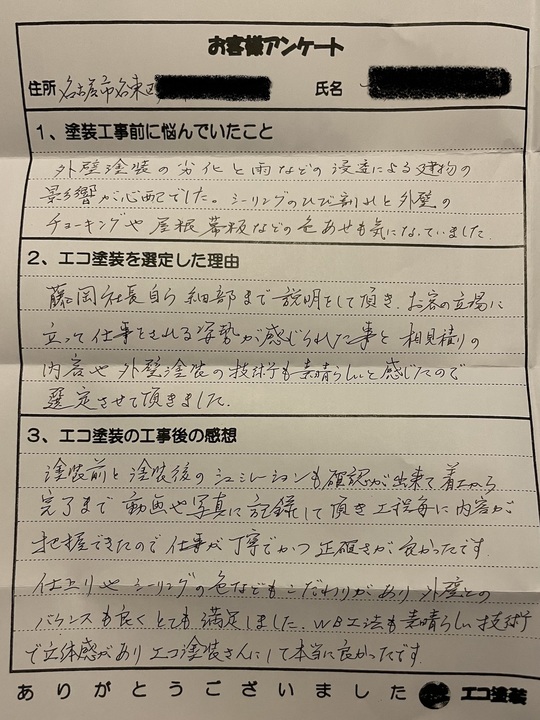 お客様アンケート
住所 名古屋市名東区 氏名
1、塗装工事前に悩んでいたこと
外壁塗装の劣化と雨などの浸透による建物の
影響が心配でした。シーリングのひび割れと外壁の
チョーキングや屋根帯板などの色あせも気になっていました
2、エコ塗装を選定した理由
藤岡社長自ら細部まで説明をして頂き、お客の立場に
立って仕事をされる姿勢が感じられた事と相見積りの
内容や外壁塗装の技術も素晴らしいと感じたので
選定させて頂きました。
3、エコ塗装の工事後の感想
塗装前と塗装後のシュミレーションも確認が出来て着工から
完了まで動画や写真に記録して頂き工程毎に内容が
把握できたので仕事が丁寧でかつ正確さが良かったです
仕上りやシーリングの色などもこだわりがあり外壁との
バランスも良くとても満足しました。WB工法も素晴らしい技術
で立体感がありエコ塗装さんにして本当に良かったです。
ありがとうございました エコ塗装